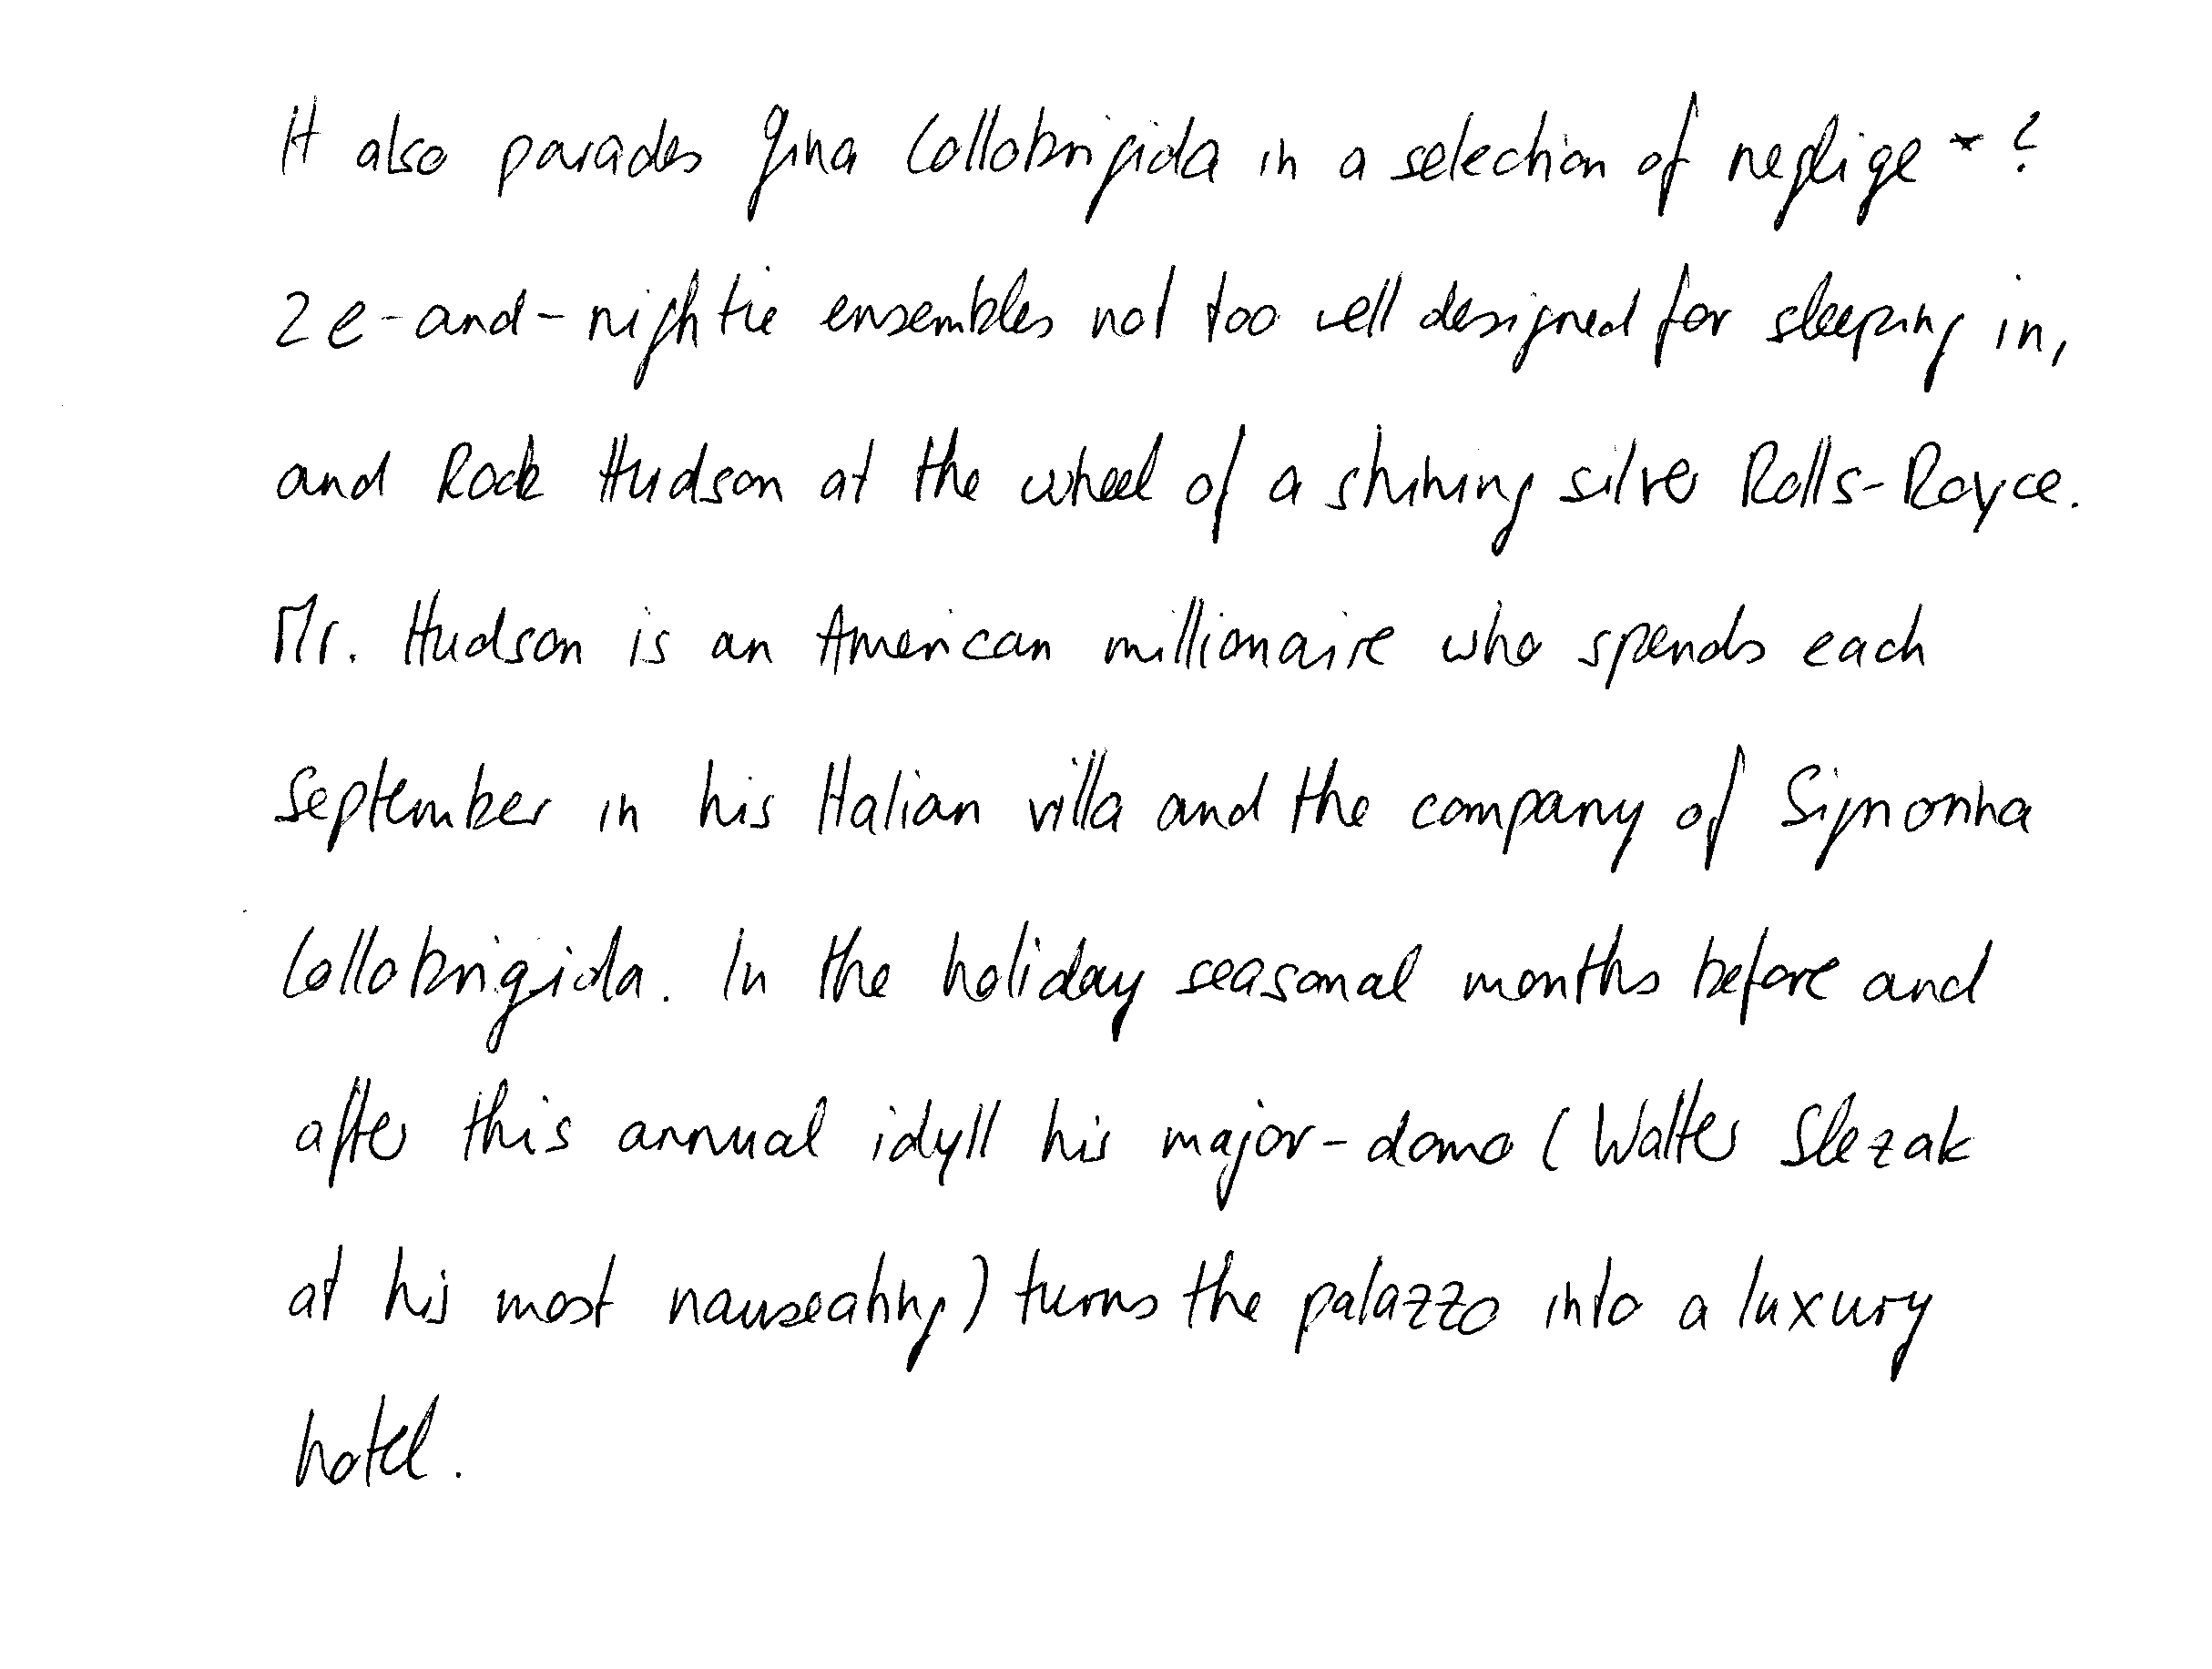 It also parades Gina Lollobrigida in a selection of neglige *?
2 e-and-nightie ensembles not too well designed for sleeping in,
and Rock Hudson at the wheel of a shining silver Rolls-Royce.
Mr. Hudson is an American millionaire who spends each
September in his Italian villa and the company of Signorina
Lollobrigida. In the holiday seasonal months before and
after this annual idyll his major-domo (Walter Slezak
at his most nauseating) turns the palazzo into a luxury
hotel.